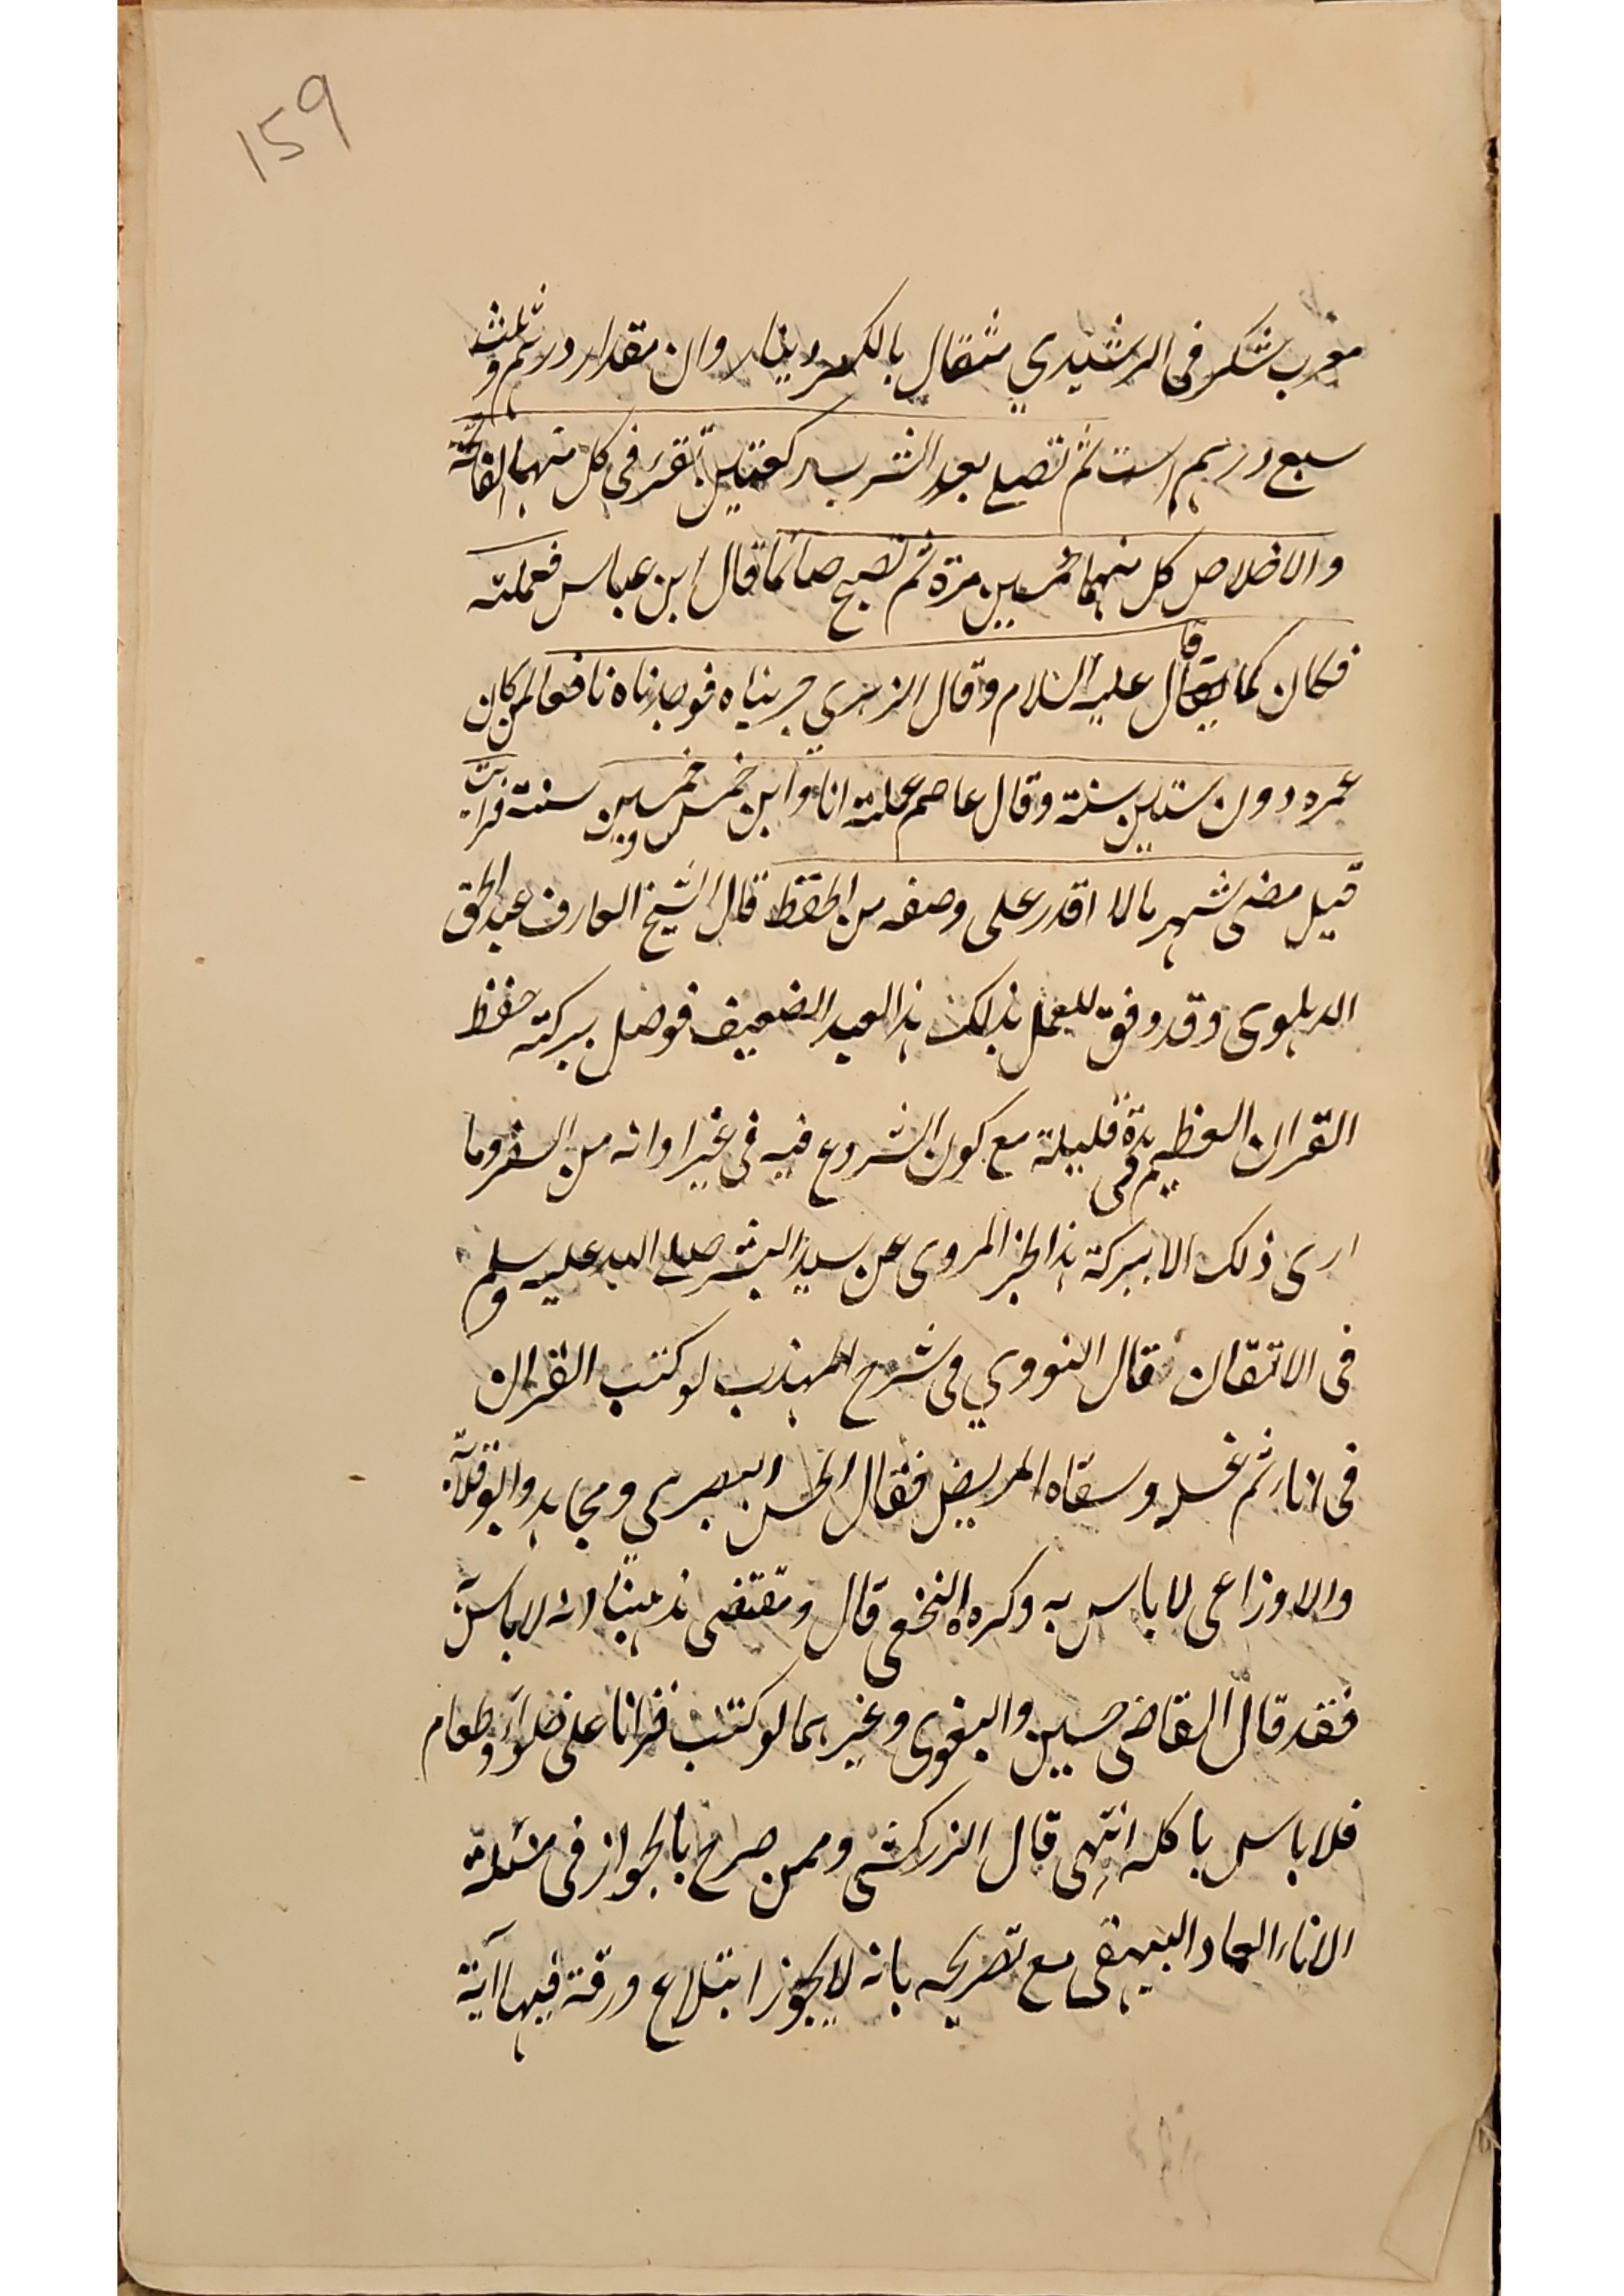 159
معرب شكر فى الرشيدي مثقال بالكسر دينار وان مقدار درهم وثلث
سبع درهم است ثم تصلي بعد الشرب ركعتين تقرء فى كل منهما الفاتحة
والاخلاص كل منهما خمسين مرة ثم تصبح صائما قال ابن عباس فعملته
فكان كما قال عليه السلام وقال الزهري جربناه فوجدناه نافعا لمن كان
عمره دون ستين سنة وقال عاصم عملته انا وابن خمس وخمسين سنة فرايت
قبل مضى شهر مالا اقدر على وصفه من الحفظ قال الشيخ العارف عبد الحق
الدهلوى وقد وفق للعمل بذلك هذا العبد الضعيف فوصل ببركته حفظ
القران العظيم فى مدة قليلة مع كون الشروع فيه فى غير اوانه من السفر وما
ارى ذلك الا ببركة هذا الخبر المروى عن سيد البشر صلى الله عليه وسلم
فى الاتقان قال النووي فى شرح المهذب لو كتب القران
فى اناء ثم غسله وسقاه المريض فقال الحسن البصرى ومجاهد وابو قلابة
والاوزاعى لا باس به وكرهه النخعى قال ومقتضى مذهبنا انه لا باس به
فقد قال القاضى حسين والبغوى وغيرهما لو كتب قرانا على حلواء وطعام
فلا باس باكله انتهى قال الزركشى وممن صرح بالجواز فى مسئلة
الاناء العماد البيهقى مع تصريحه بانه لا يجوز ابتلاع ورقة فيها آية